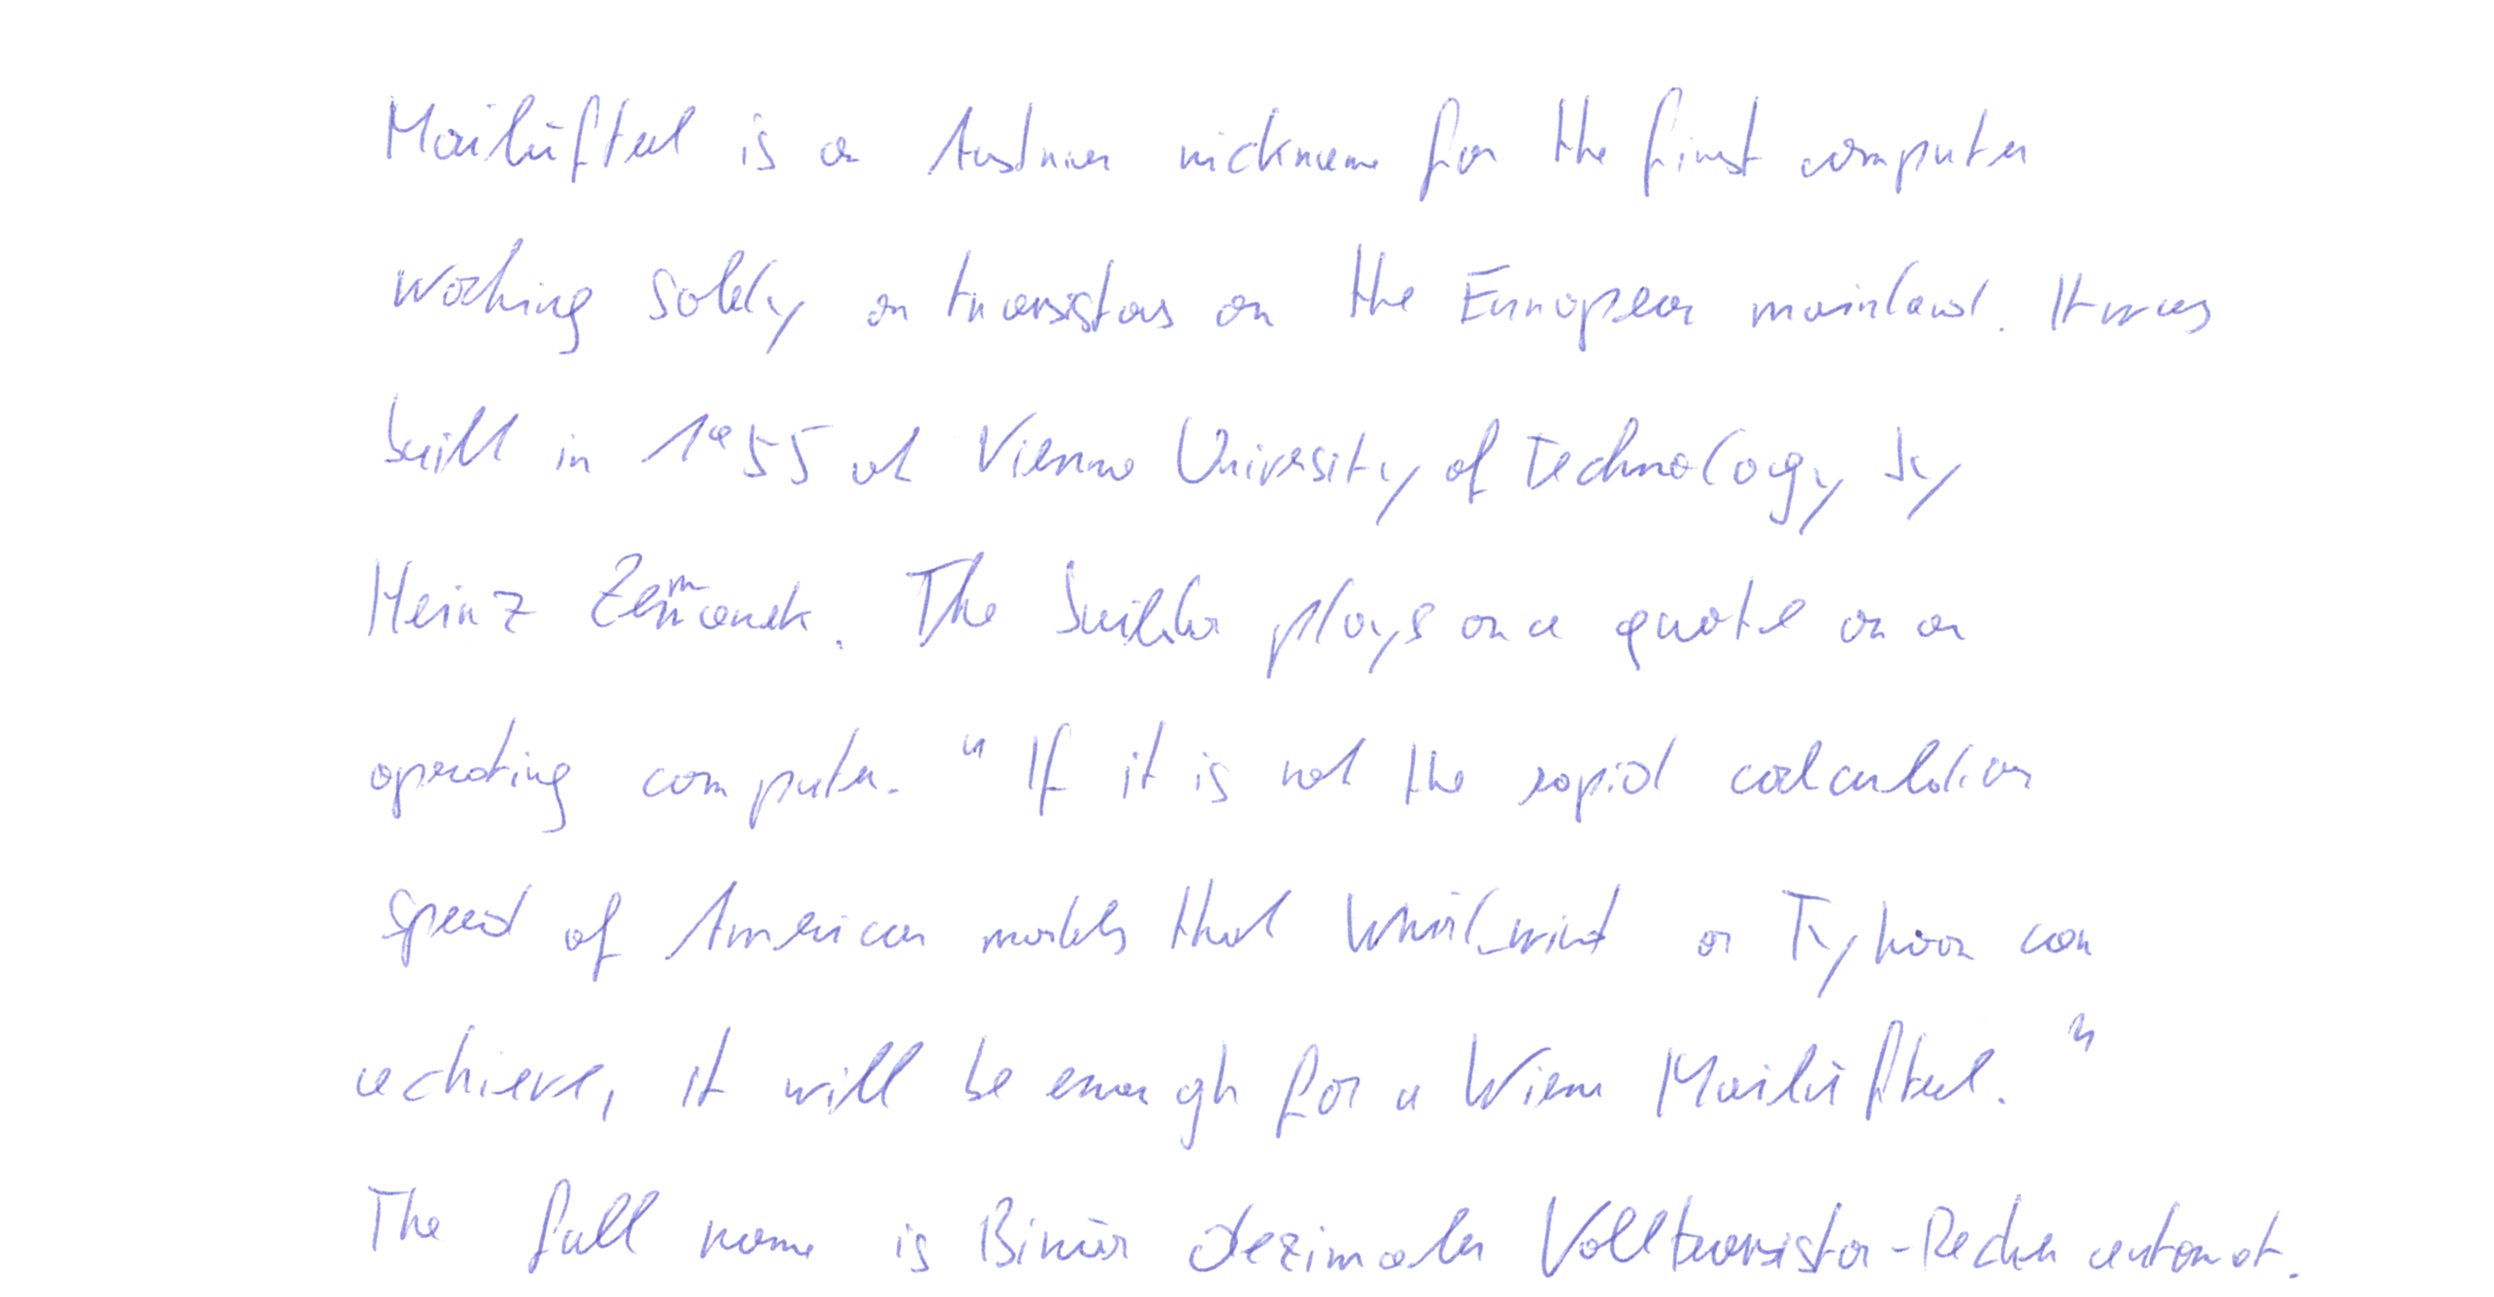 Mailüfterl is an Austrian nickname for the first computer
working solely on transistors on the European mainland. It was
built in 1955 at Vienna University of Technology by
Heinz Zemanek. The builder plays on a quote on an
operating computer. "If it is not the rapid calculation
speed of American models that Whirlwind or Typhoon can
achieve, it will be enough for a Wiener Mailüfterl."
The full name is Binär dezimaler Volltransistor-Rechenautomat.